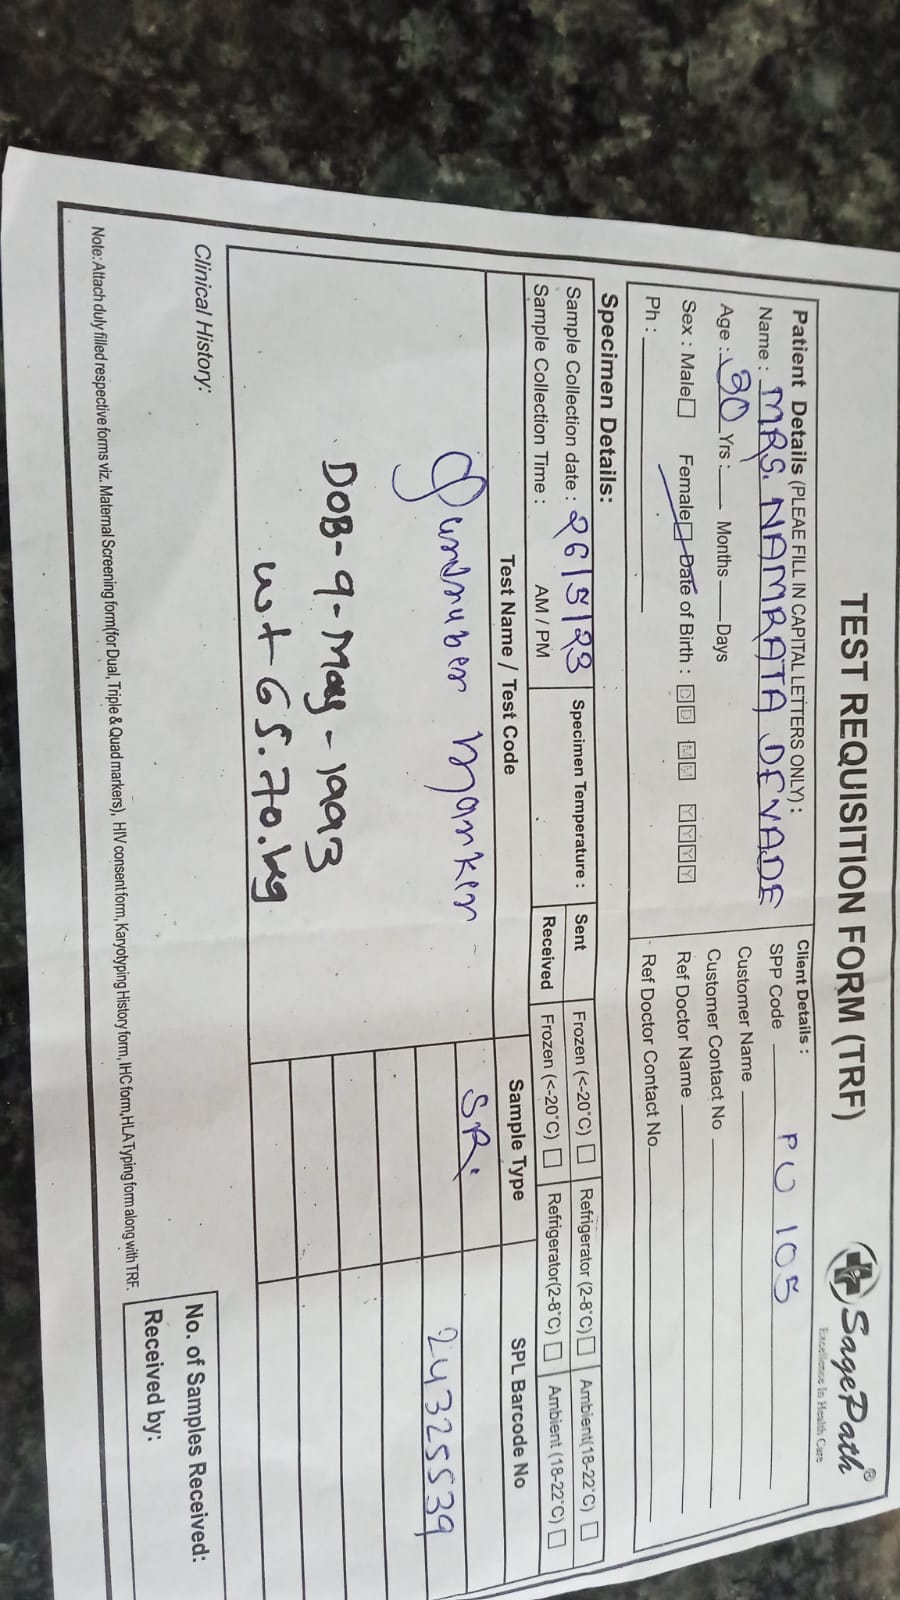 TEST REQUISITION FORM (TRF)
SagePath®
Excellence In Health Care
Patient Details (PLEAE FILL IN CAPITAL LETTERS ONLY) :
Name : MRS. NAMRATA DEVADE
Age : 30 Yrs : Months Days
Sex : Male☐ Female☐ Date of Birth : DD MM YYYY
Ph :
Client Details :
SPP Code PU 105
Customer Name
Customer Contact No
Ref Doctor Name
Ref Doctor Contact No
Specimen Details:
Sample Collection date : 26/5/23
Sample Collection Time : AM / PM
Specimen Temperature :
Sent Frozen (<-20°C) ☐ Refrigerator (2-8°C) ☐ Ambient(18-22°C) ☐
Received Frozen (<-20°C) ☐ Refrigerator(2-8°C) ☐ Ambient (18-22°C) ☐
Test Name / Test Code Sample Type SPL Barcode No
marker SR. 24325539
DOB-9-May-1993
wt 65.70.kg
Clinical History:
No. of Samples Received:
Received by:
Note: Attach duly filled respective forms viz. Maternal Screening form(for Dual, Triple & Quad markers), HIV consent form, Karyotyping History form, IHC form,HLA Typing form along with TRF.